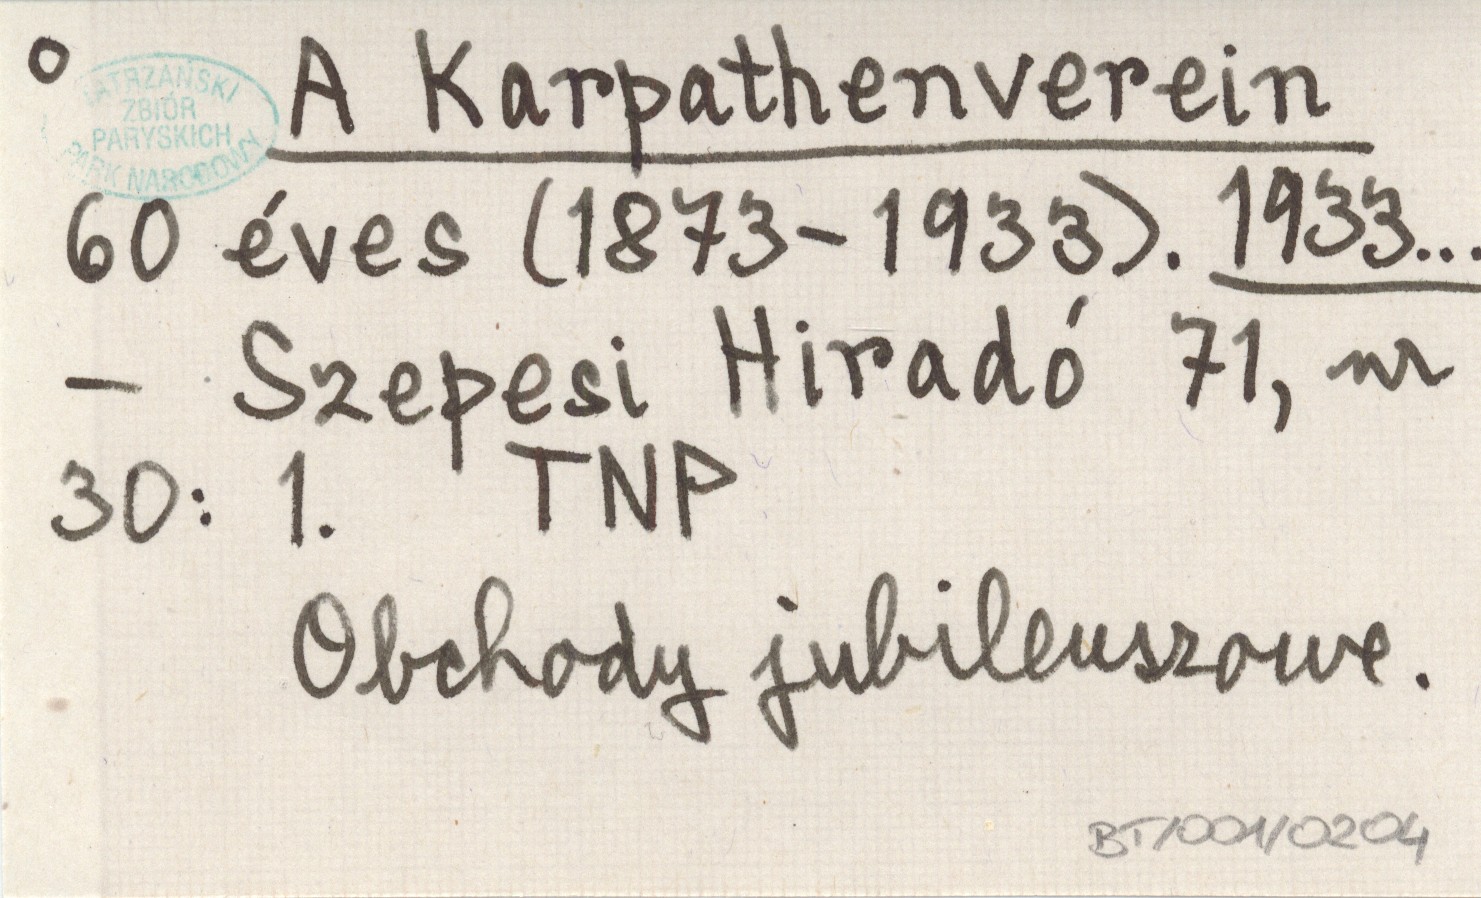 o A Karpathenverein
TATRZAŃSKI
ZBIÓR
PARYSKICH
PARK NARODOWY
60 éves (1873-1933). 1933...
— Szepesi Hiradó 71, nr
30: 1. TNP
Obchody jubileuszowe.
BT/001/0204